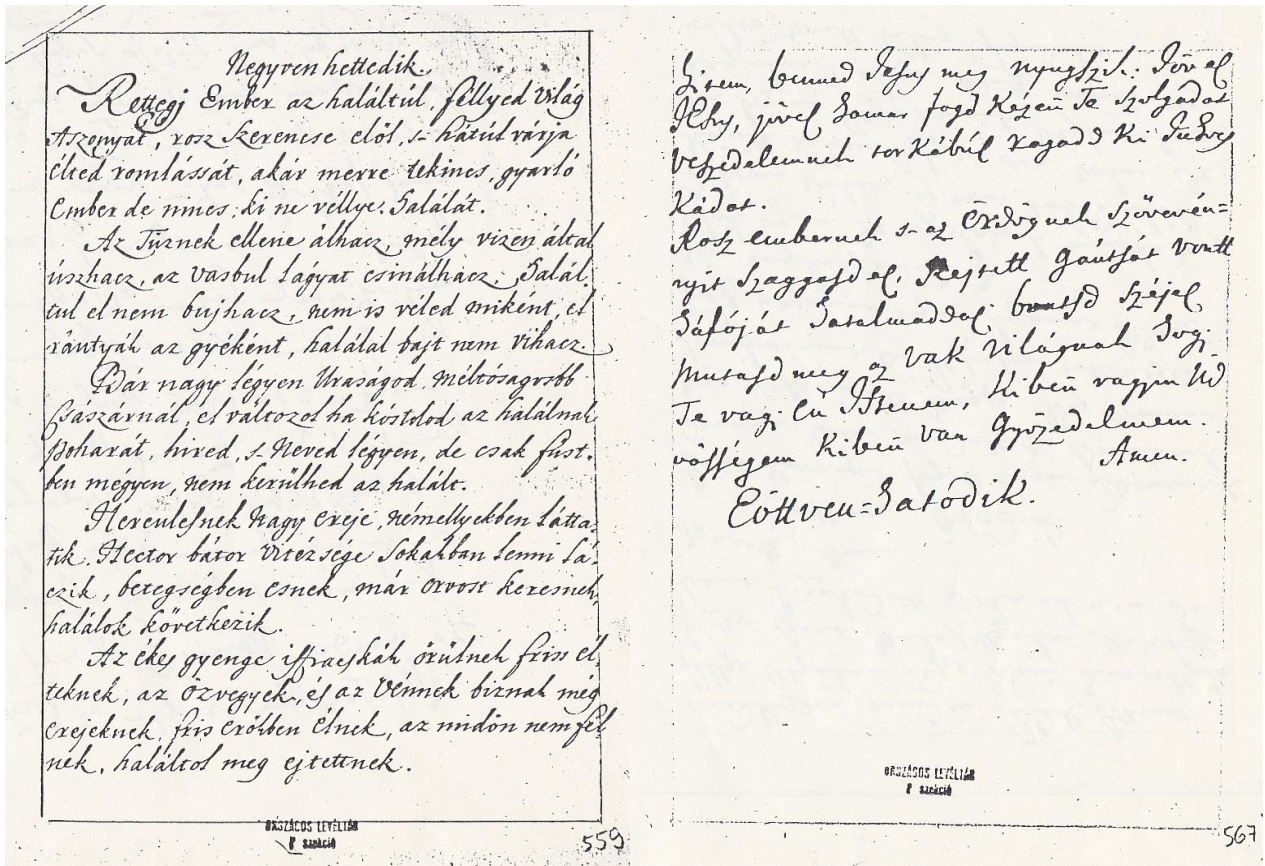 Negyven hettedik.
Rettegj Ember az haláltúl, féllyed Világ
Aszonyát, rosz szerencse elöl, s- hátúl várja
élted romlássát, akár merre tekincs, gyarló
Ember de nincs, ki ne véllye Halálát.
Az Tüznek ellene álhacz, mély vizen által
úszhacz, az vasbul lágyat csinálhacz: Halál-
tul el nem bujhacz, nem is véled miként, el
rántyák az gyéként, halálal bajt nem víhacz.
Bár nagy légyen Uraságod, méltóságosbb
Csaszárnál, el változol ha kóstolod az halálnak
poharát, hired, s- Neved légyen, de csak füst-
ben mégyen, nem kerülhed az halált.
Herculesnek Nagy ereje, némellyekben látta-
tik. Hector bátor Vitézsége sokakban lenni lá-
czik, betegségben esnek, már orvost keresnek,
halálok következik.
Az ékes gyenge iffiacskák örülnek friss él-
teknek, az özvegyek, és az Vénnek biznak még
erejeknek, fris erökben élnek, az midön nem fél-
nek, haláltol meg ejtettnek.
ORSZÁGOS LEVÉLTÁR
P szekció
559
Sirem, benned Jesus meg nyugszik: Jövel
Jesus, jövel hamar fogd Kézen Te szolgadat
veszedelemnek torkábúl ragadd ki
Kádot.
Rosz embernek s- az Ördögnek szövevén=
nyit szaggasd el, Rejtett gántsát vontt
Hálóját hatalmaddal bontsd széjel
Mutasd meg az vak világnak hogj
Te vagj én Istenem, kiben vagjon Üd
vösségem kiben van Gyözedelmem.
Amen.
Eöttven=Hatodik.
ORSZÁGOS LEVÉLTÁR
P szekció
567